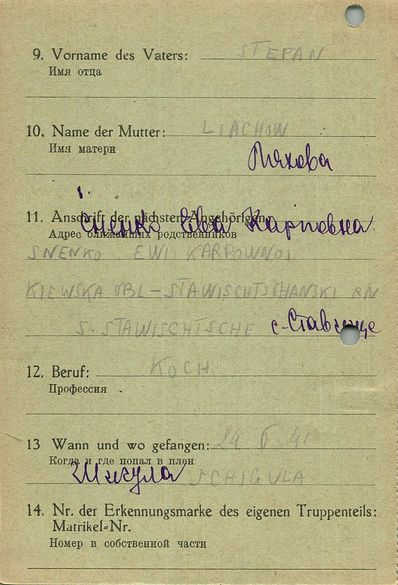 9. Vorname des Vaters: STEPAN
Имя отца
10. Name der Mutter: LIACHOW
Имя матери
Ляхова
11. Anschrift der nächsten Angehörigen:
Ева Карповна
Адрес ближайших родственников
SNENKO EWI KARPOWNOI
KIEWSKA OBL-STAWISCHTSCHANSKI RN
S. STAWISCHTSCHE с-Ставище
12. Beruf: KOCH
Профессия
13 Wann und wo gefangen:
Когда и где попал в плен
Шигула SCHIGULA
14. Nr. der Erkennungsmarke des eigenen Truppenteils:
Matrikel-Nr.
Номер в собственной части